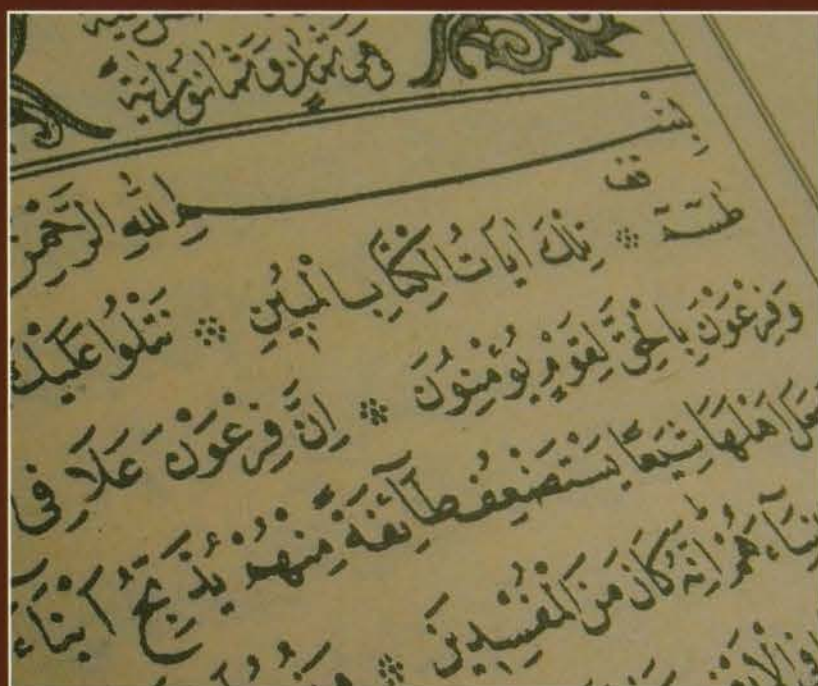 وَهِيَ ثَمَانٍ وَثَمَانُونَ اٰيَةً
بِسْمِ اللهِ الرَّحْمٰنِ
قف
طٰسٓمٓ ۞ تِلْكَ اٰيَاتُ الْكِتَابِ الْمُبِينِ ۞ نَتْلُوا عَلَيْكَ
وَفِرْعَوْنَ بِالْحَقِّ لِقَوْمٍ يُؤْمِنُونَ ۞ اِنَّ فِرْعَوْنَ عَلَا فِى
اَهْلَهَا شِيَعًا يَسْتَضْعِفُ طَٓائِفَةً مِنْهُمْ يُذَبِّحُ اَبْنَٓاءَ
اِنَّهُ كَانَ مِنَ الْمُفْسِدِينَ ۞